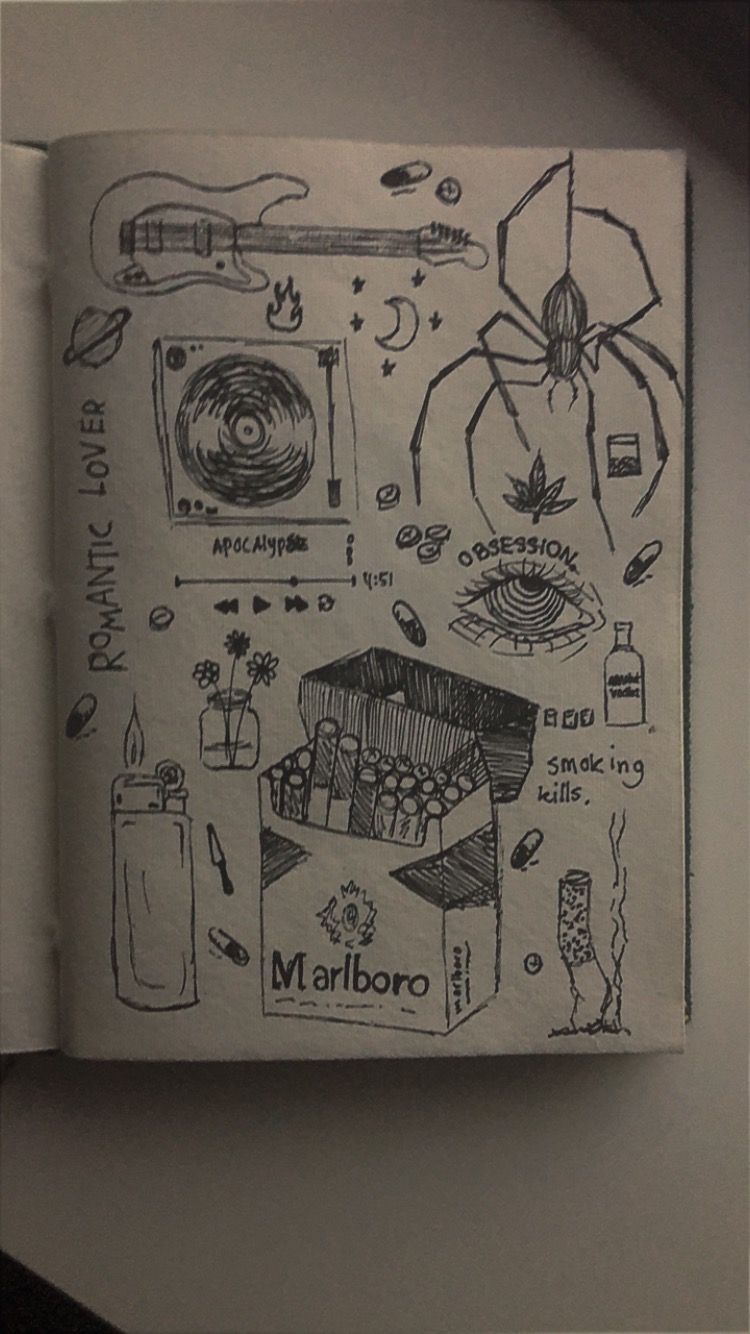 ROMANTIC LOVER
APOCALYPSE
4:51
OBSESSION.
Absolut
Vodka
smoking
kills.
Marlboro
marlboro